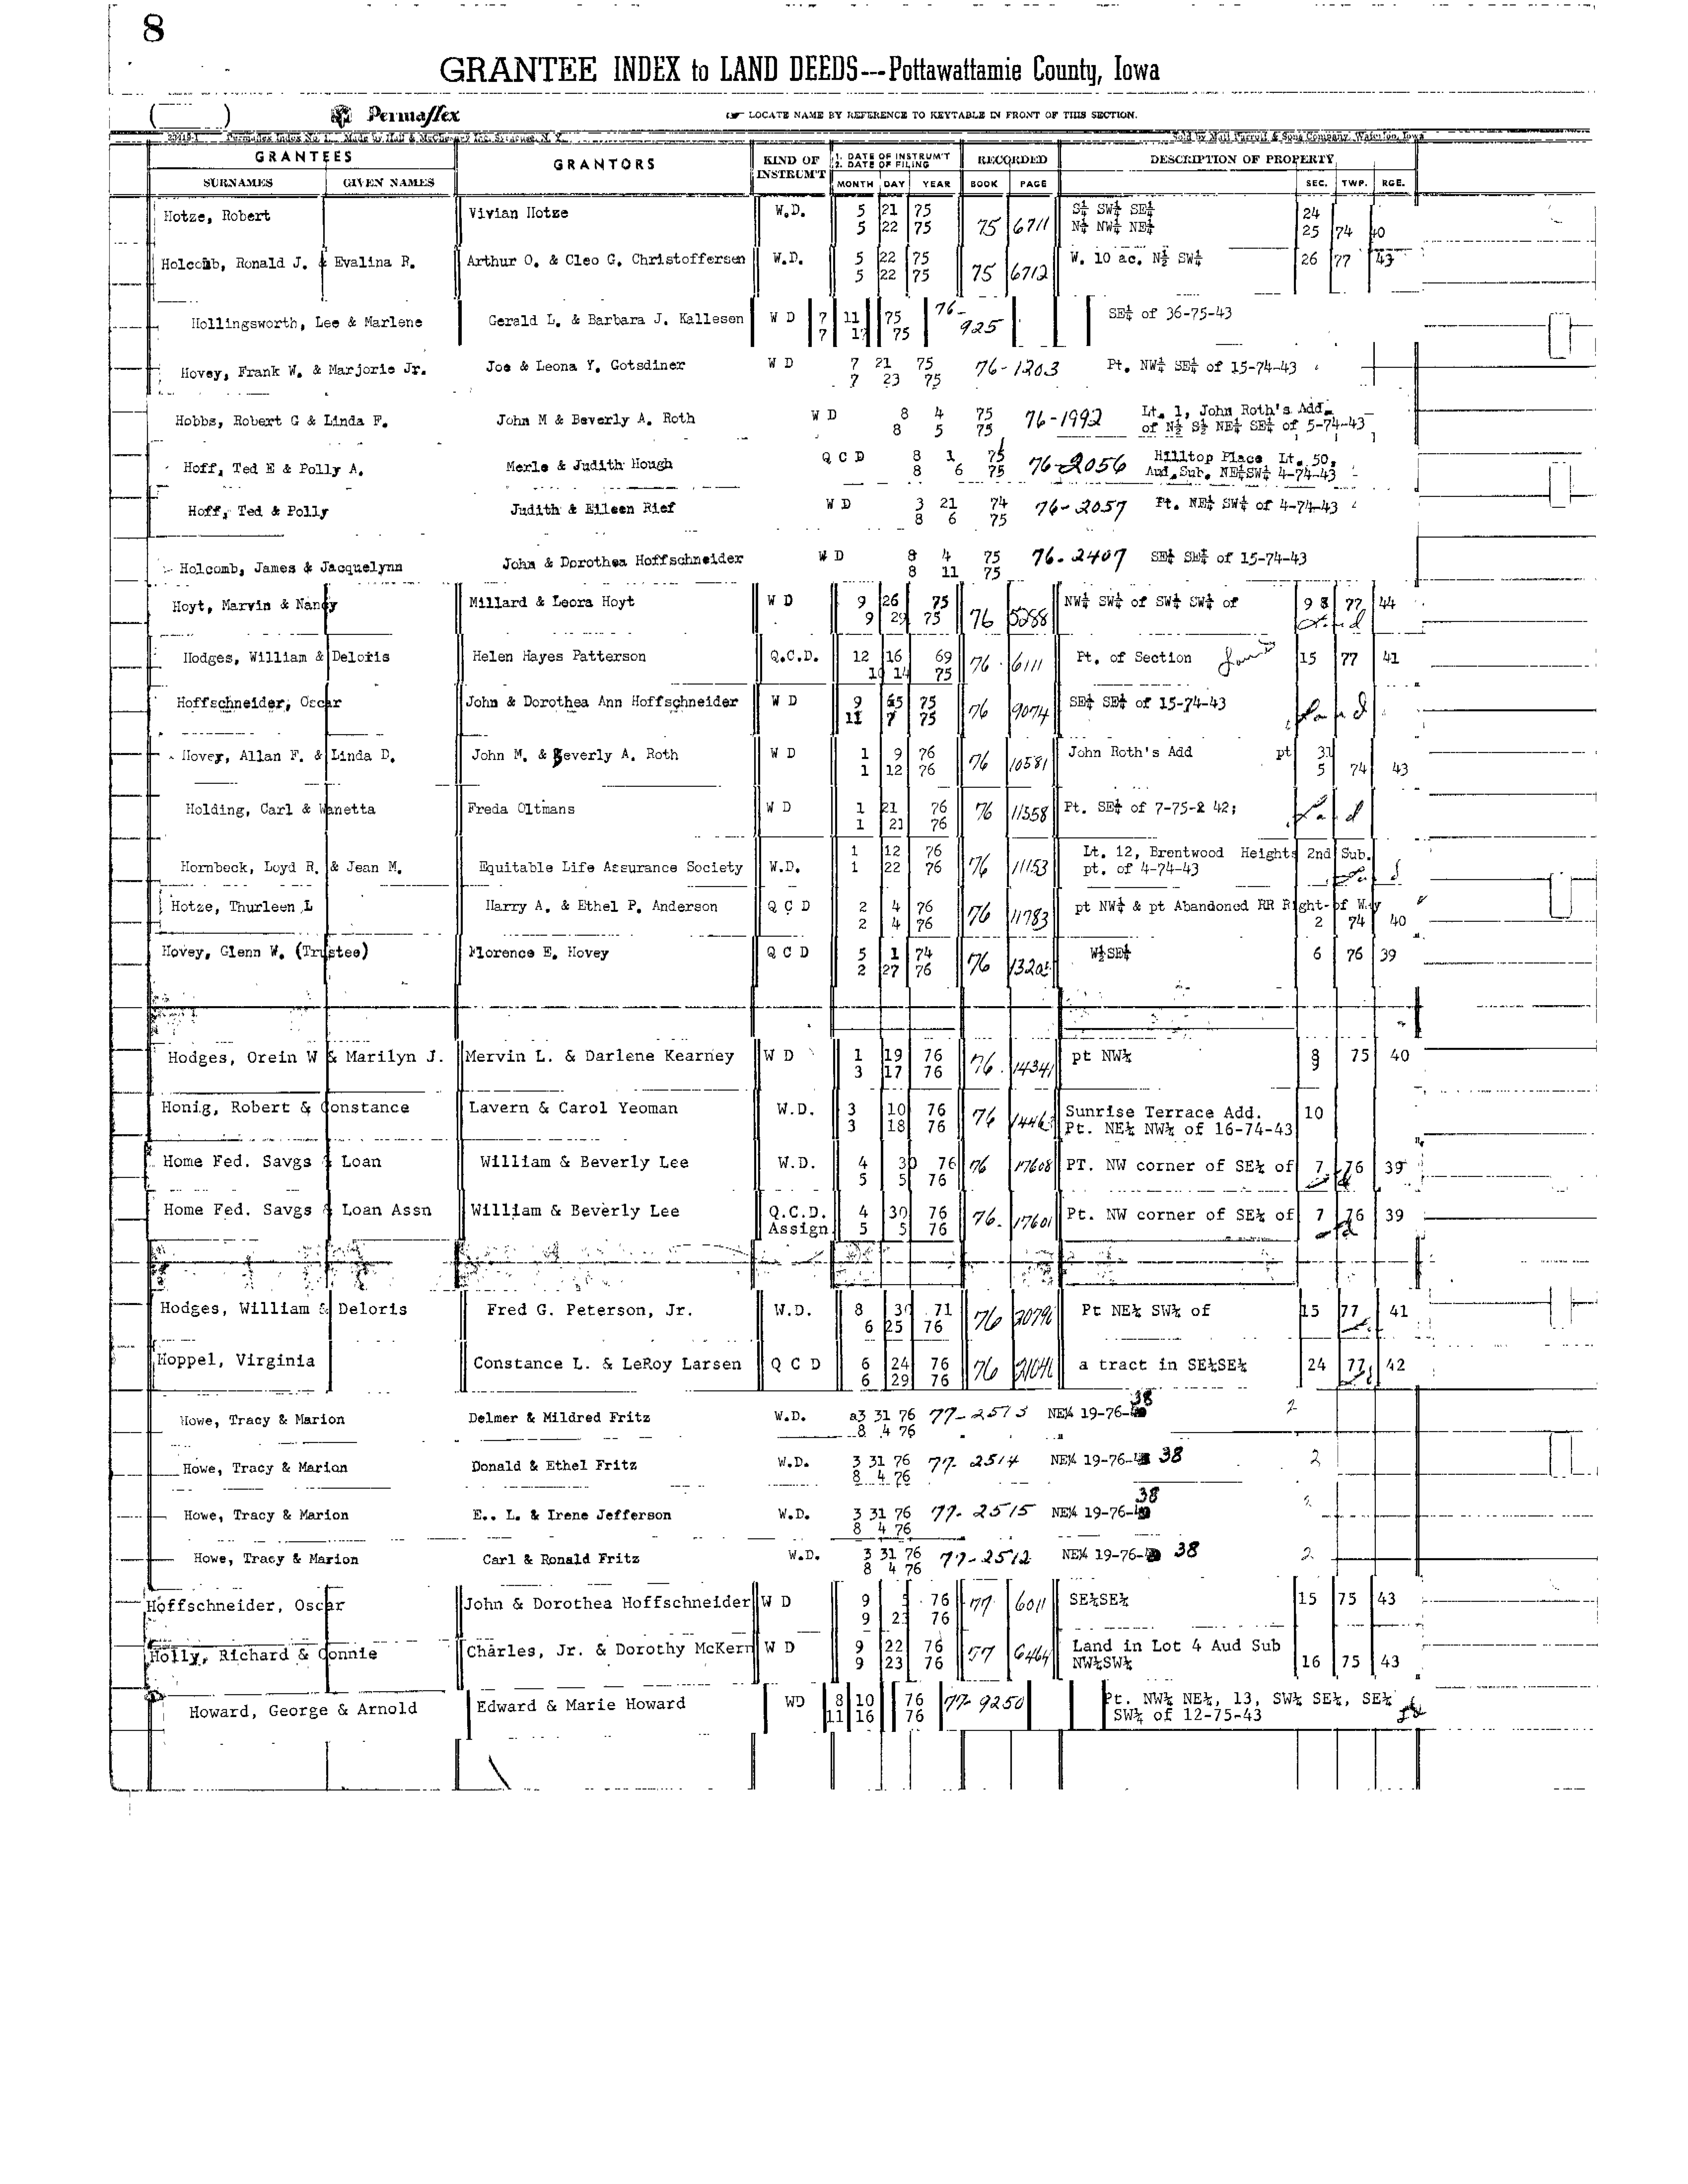 8
GRANTEE INDEX to LAND DEEDS---Pottawattamie County, Iowa
Permaflex
LOCATE NAME BY REFERENCE TO KEYTABLE IN FRONT OF THIS SECTION.
GRANTEES GRANTORS KIND OF INSTRUM'T 1. DATE OF INSTRUM'T 2. DATE OF FILING RECORDED DESCRIPTION OF PROPERTY
SURNAMES GIVEN NAMES MONTH DAY YEAR BOOK PAGE SEC. TWP. RGE.
Hotze, Robert Vivian Hotze W.D. 5 21 75 75 6711 SW¼ SE¼ 24
5 22 75 NW¼ NE¼ 25 74 40
Holcomb, Ronald J. & Evalina R. Arthur O. & Cleo G. Christoffersen W.D. 5 22 75 75 6712 W. 10 ac. N½ SW¼ 26 77 43
5 22 75
Hollingsworth, Lee & Marlene Gerald L. & Barbara J. Kallesen W D 7 11 75 76-925 SE¼ of 36-75-43
7 75
Hovey, Frank W. & Marjorie Jr. Joe & Leona Y. Gotsdiner W D 7 21 75 76-1203 Pt. NW¼ SE¼ of 15-74-43
7 23 75
Hobbs, Robert G & Linda F. John M & Beverly A. Roth W D 8 4 75 76-1992 Lt. 1, John Roth's Add.
8 5 75 of N½ S½ NE¼ SE¼ of 5-74-43
Hoff, Ted E & Polly A. Merle & Judith Hough Q C D 8 1 75 76-2056 Hilltop Place Lt. 50,
8 6 75 Aud.Sub. NE¼SW¼ 4-74-43
Hoff, Ted & Polly Judith & Eileen Rief W D 3 21 74 76-2057 Pt. NE¼ SW¼ of 4-74-43
8 6 75
Holcomb, James & Jacquelynn John & Dorothea Hoffschneider W D 8 4 75 76-2407 SE¼ of 15-74-43
8 11 75
Hoyt, Marvin & Nancy Millard & Leora Hoyt W D 9 26 75 76 5288 NW¼ SW¼ of SW¼ SW¼ of 9 8 77 44
9 29 75
Hodges, William & Deloris Helen Hayes Patterson Q.C.D. 12 16 69 76 6111 Pt. of Section 15 77 41
10 14 75
Hoffschneider, Oscar John & Dorothea Ann Hoffschneider W D 9 75 76 9074 SE¼ SE¼ of 15-74-43
11 7 75 Land
Hovey, Allan F. & Linda D. John M. & Beverly A. Roth W D 1 9 76 76 10581 John Roth's Add pt 31
1 12 76 5 74 43
Holding, Carl & Wanetta Freda Oltmans W D 1 21 76 76 11358 Pt. SE¼ of 7-75-& 42;
1 21 76
Hornbeck, Loyd R. & Jean M. Equitable Life Assurance Society W.D. 1 12 76 76 11153 Lt. 12, Brentwood Heights 2nd Sub.
1 22 76 pt. of 4-74-43
Hotze, Thurleen L Harry A. & Ethel P. Anderson Q C D 2 4 76 76 11783 pt NW¼ & pt Abandoned RR Right-of Way
2 4 76 2 74 40
Hovey, Glenn W. (Trustee) Florence E. Hovey Q C D 5 1 74 76 W½SE¼ 6 76 39
2 27 76
Hodges, Orein W & Marilyn J. Mervin L. & Darlene Kearney W D 1 19 76 76 14341 pt NW¼ 75 40
3 17 76
Honig, Robert & Constance Lavern & Carol Yeoman W.D. 3 10 76 76 Sunrise Terrace Add. 10
3 18 76 Pt. NE¼ NW¼ of 16-74-43
Home Fed. Savgs & Loan William & Beverly Lee W.D. 4 30 76 76 17608 PT. NW corner of SE¼ of 7 76 39
5 5 76
Home Fed. Savgs & Loan Assn William & Beverly Lee Q.C.D. 4 30 76 76. 17601 Pt. NW corner of SE¼ of 7 76 39
Assign 5 5 76
Hodges, William & Deloris Fred G. Peterson, Jr. W.D. 8 30 71 76 Pt NE¼ SW¼ of 15 77 41
6 25 76
Hoppel, Virginia Constance L. & LeRoy Larsen Q C D 6 24 76 76 a tract in SE¼SE¼ 24 77 42
6 29 76
Howe, Tracy & Marion Delmer & Mildred Fritz W.D. 3 31 76 77-2513 NE¼ 19-76-38
8 4 76
Howe, Tracy & Marion Donald & Ethel Fritz W.D. 3 31 76 77-2514 NE¼ 19-76-38 2
8 4 76
Howe, Tracy & Marion E.. L. & Irene Jefferson W.D. 3 31 76 77-2515 NE¼ 19-76-38
8 4 76
Howe, Tracy & Marion Carl & Ronald Fritz W.D. 3 31 76 77-2512 NE¼ 19-76-38 2
8 4 76
Hoffschneider, Oscar John & Dorothea Hoffschneider W D 9 76 77 6011 SE¼SE¼ 15 75 43
9 23 76
Holly, Richard & Connie Charles, Jr. & Dorothy McKern W D 9 22 76 77 6464 Land in Lot 4 Aud Sub
9 23 76 NW¼SW¼ 16 75 43
Howard, George & Arnold Edward & Marie Howard WD 8 10 76 77-9250 Pt. NW¼ NE¼, 13, SW¼ SE¼, SE¼
11 16 76 SW¼ of 12-75-43